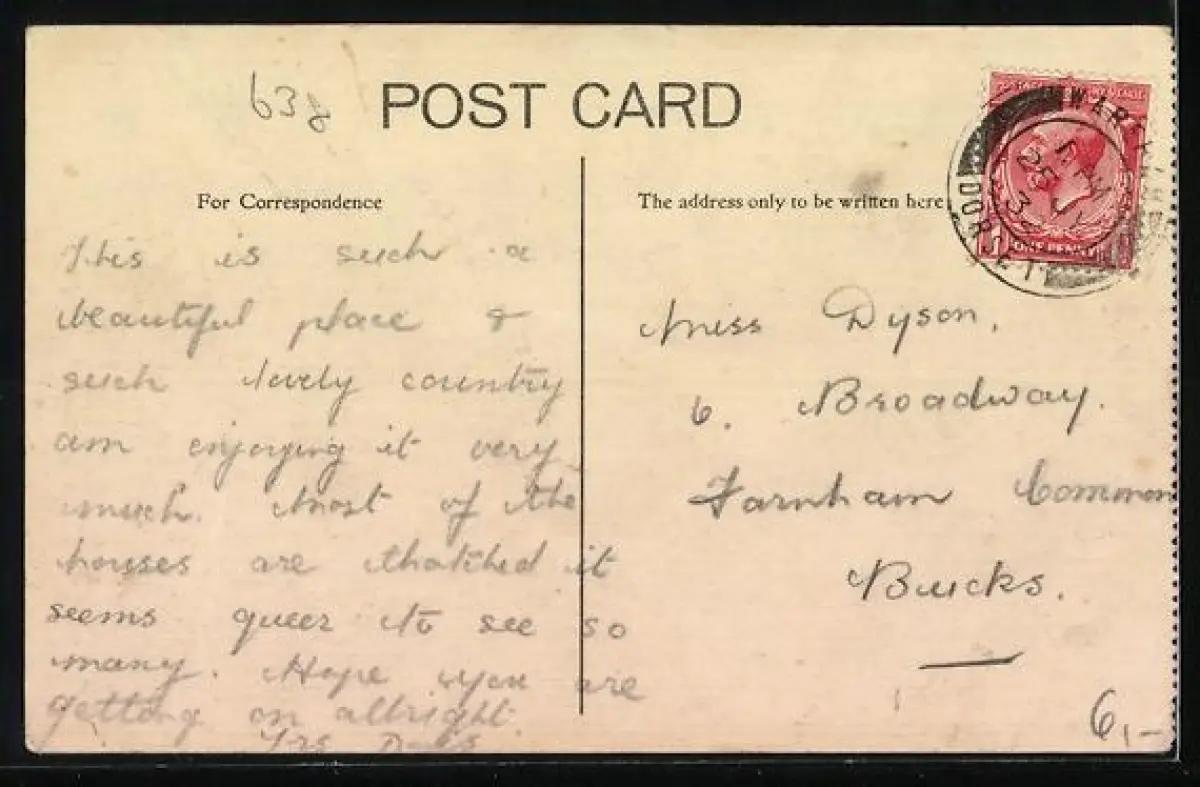 638
POST CARD
For Correspondence
The address only to be written here.
ONE PENNY
DORSET
This is such a
beautiful place &
such lovely country
am enjoying it very
much. Most of the
houses are thatched it
seems queer to see so
many. Hope you are
getting on allright.
Yrs
Miss Dyson,
6. Broadway.
Farnham Common
Bucks.
6,-